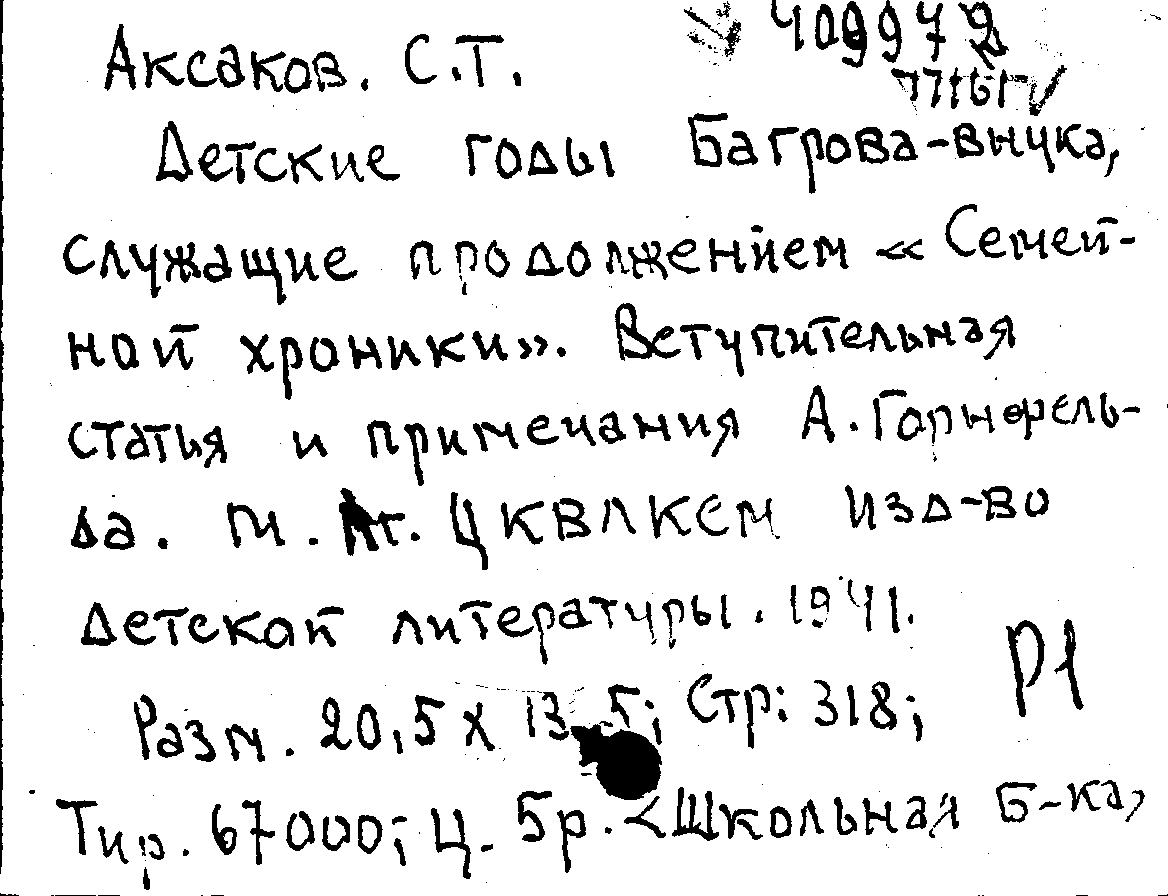 Аксаков. С.Т.
Детские годы Багрова-внука,
служащие продолжением «Семей-
ной хроники». Вступительная
статья и примечания А. Горнфель-
да. М. ЦКВЛКСМ изд-во
детской литературы. 1941.
Р1
Разм. 20,5 х 13,5; Стр: 318;
Тир. 67000; Ц. 5р. <Школьная б-ка,